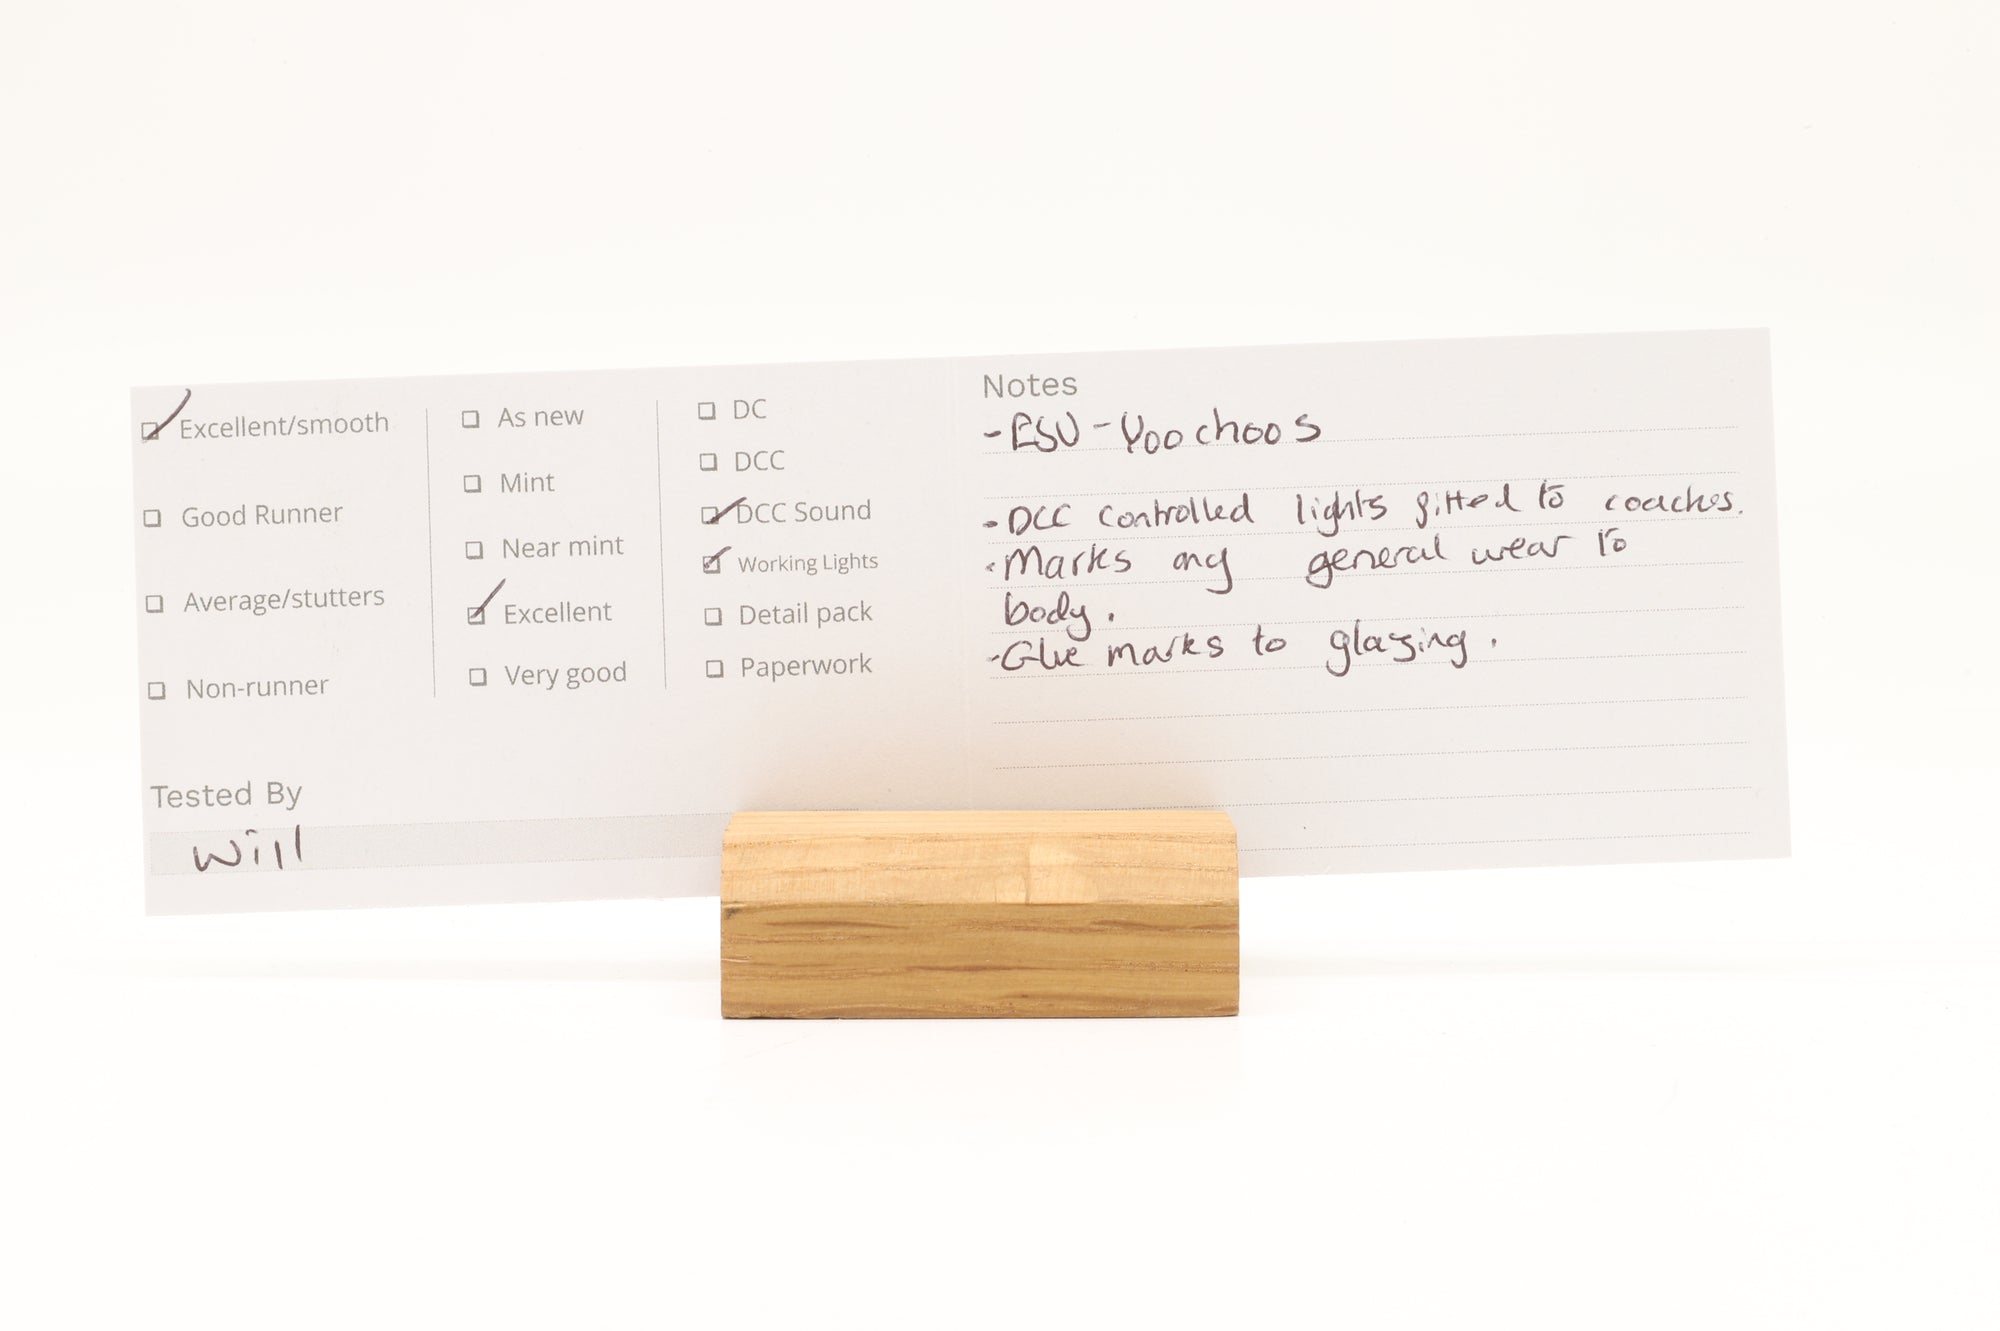 Excellent/smooth
Good Runner
Average/stutters
Non-runner
As new
Mint
Near mint
Excellent
Very good
DC
DCC
DCC Sound
Working Lights
Detail pack
Paperwork
Tested By
Will
Notes
- ESU - Yoochoos
- DCC controlled lights fitted to coaches.
- Marks any general wear to
body.
- Glue marks to glazing.